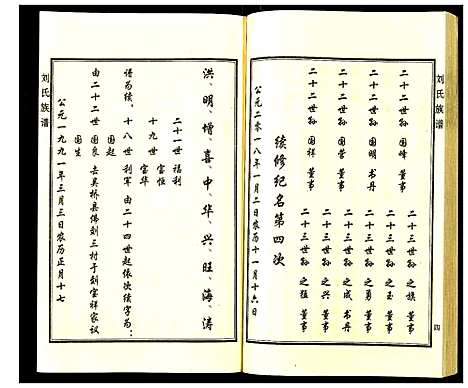 刘氏族谱
四
二十三世孙 之族 董事
二十三世孙 之玉 董事
二十三世孙 之勇 董事
二十三世孙 之成 书丹
二十三世孙 之兴 董事
二十三世孙 之猛 董事
二十二世孙 国峰 董事
二十二世孙 国明 书丹
二十二世孙 国营 董事
二十二世孙 国祥 董事
续修纪名第四次
公元二零一八年一月二日农历十一月十六日
洪、明、增、喜、中、华、兴、旺、海、涛
二十一世 福利
十九世 宝恒
宝华
谱为续。十八世 利军 由二十四世起依次续字为:
国起
由二十二世 国良 去吴桥县佛刘三村于刘宝祥家议
国生
公元一九九一年三月三日农历正月十七
刘氏族谱